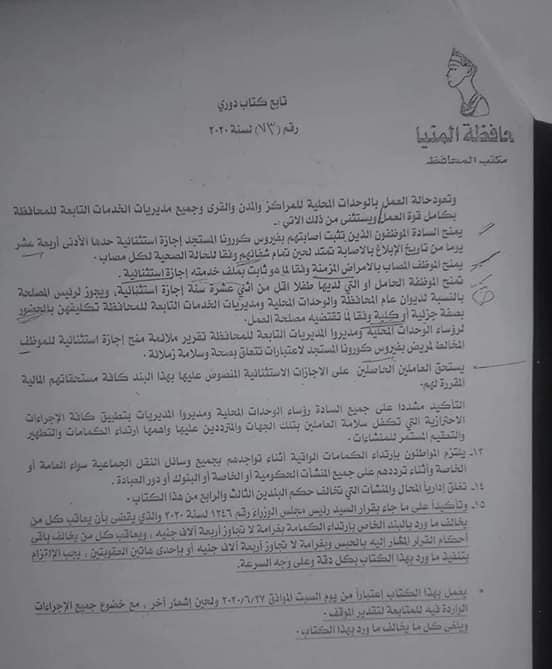 محافظة المنيا
مكتب المحافظ
تابع كتاب دوري
رقم (٧٣) لسنة ٢٠٢٠
وتعود حالة العمل بالوحدات المحلية للمراكز والمدن والقرى وجميع مديريات الخدمات التابعة للمحافظة
بكامل قوة العمل ويستثنى من ذلك الآتي :-
يمنح السادة الموظفون الذين تثبت اصابتهم بفيروس كورونا المستجد إجازة استثنائية حدها الأدنى أربعة عشر
يوما من تاريخ الإبلاغ بالاصابة تمتد لحين تمام شفائهم وفقا للحالة الصحية لكل مصاب .
يمنح الموظف المصاب بالامراض المزمنة وفقا لما هو ثابت بملف خدمته إجازة استثنائية .
تمنح الموظفة الحامل أو التي لديها طفلا اقل من اثني عشرة سنة إجازة استثنائية، ويجوز لرئيس المصلحة
بالنسبة لديوان عام المحافظة والوحدات المحلية ومديريات الخدمات التابعة للمحافظة تكليفهن بالحضور
بصفة جزئية أو كلية وفقا لما تقتضيه مصلحة العمل.
لرؤساء الوحدات المحلية ومديروا المديريات التابعة للمحافظة تقرير ملائمة منح إجازة استثنائية للموظف
المخالط لمريض بفيروس كورونا المستجد لاعتبارات تتعلق بصحة وسلامة زملائة .
يستحق العاملين الحاصلين على الاجازات الاستثنائية المنصوص عليها بهذا البند كافة مستحقاتهم المالية
المقررة لهم.
التأكيد مشددا على جميع السادة رؤساء الوحدات المحلية ومديروا المديريات بتطبيق كافة الإجراءات
الاحترازية التي تكفل سلامة العاملين بتلك الجهات والمترددين عليها واهمها ارتداء الكمامات والتطهير
والتعقيم المستمر للمنشآت .
١٣- يلتزم المواطنون بارتداء الكمامات الواقية أثناء تواجدهم بجميع وسائل النقل الجماعية سواء العامة أو
الخاصة وأثناء ترددهم على جميع المنشآت الحكومية أو الخاصة أو البنوك أو دور العبادة .
١٤- تغلق إداريا المحال والمنشآت التي تخالف حكم البندين الثالث والرابع من هذا الكتاب .
١٥- وتأكيداً على ما جاء بقرار السيد رئيس مجلس الوزراء رقم ١٢٤٦ لسنة ٢٠٢٠ والذي يقضى بأن يعاقب كل من
يخالف ما ورد بالبند الخاص بارتداء الكمامة بغرامة لا تجاوز أربعة آلاف جنيه ، ويعاقب كل من يخالف باقى
أحكام القرار المشار إليه بالحبس وبغرامة لا تجاوز أربعة آلاف جنيه أو بإحدى هاتين العقوبتين ، يجب الالتزام
بتنفيذ ما ورد بهذا الكتاب بكل دقة وعلى وجه السرعة.
* يعمل بهذا الكتاب إعتباراً من يوم السبت الموافق ٢٠٢٠/٦/٢٧ ولحين إشعار آخر ، مع خضوع جميع الإجراءات
الواردة فيه للمتابعة لتقدير الموقف .
ويلغى كل ما يخالف ما ورد بهذا الكتاب .